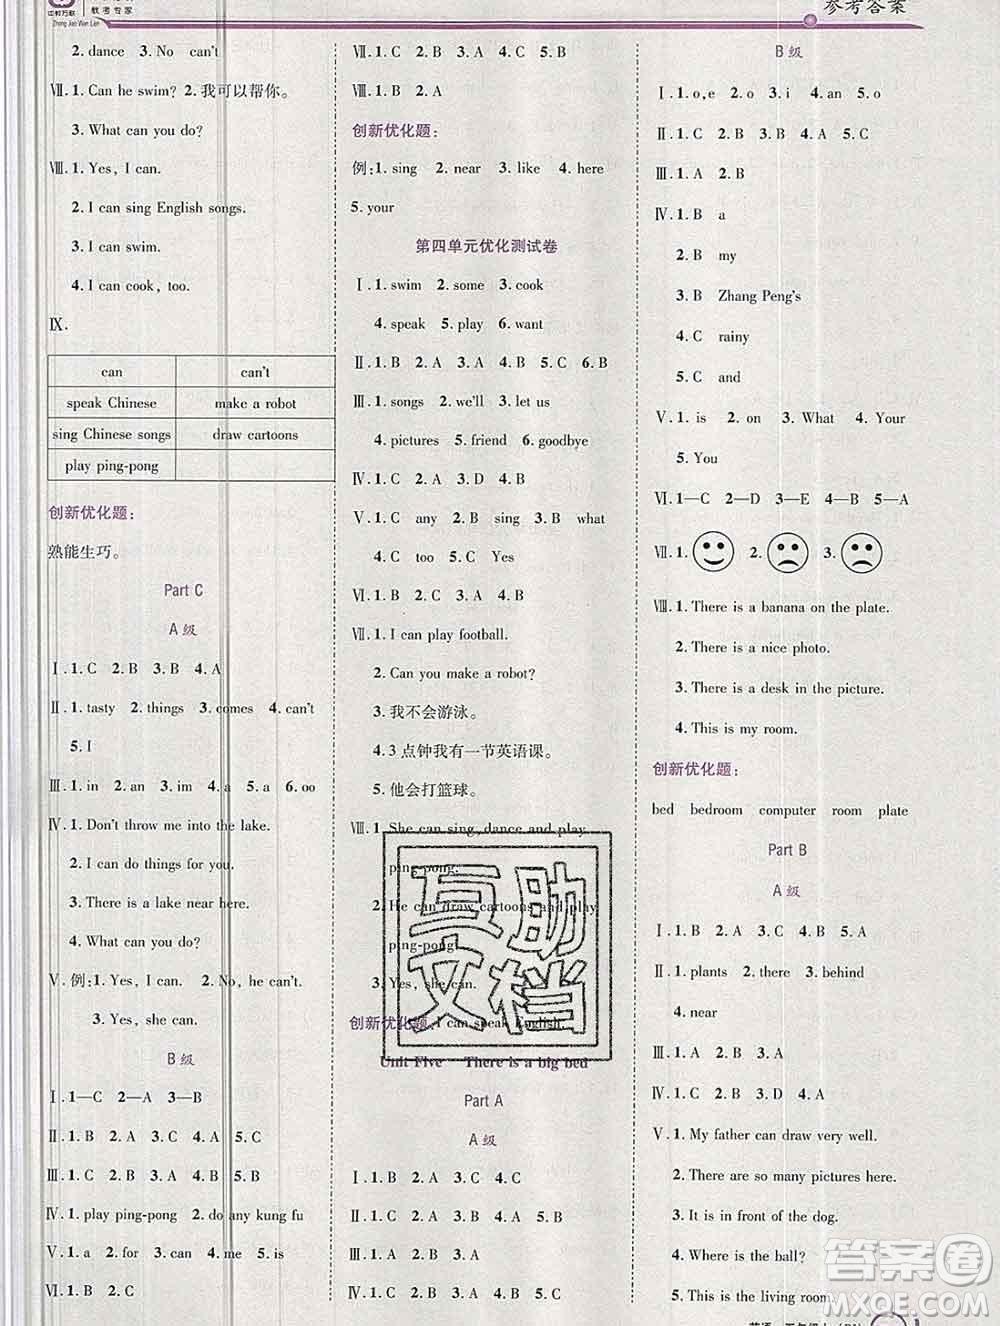 中教万联
Zhong Jiao Wan Lian
教考专家
参考答案
2. dance 3. No can't
Ⅶ. 1. Can he swim? 2. 我可以帮你。
3. What can you do?
Ⅷ. 1. Yes, I can.
2. I can sing English songs.
3. I can swim.
4. I can cook, too.
Ⅸ.
can can't
speak Chinese make a robot
sing Chinese songs draw cartoons
play ping-pong
创新优化题:
熟能生巧。
Part C
A 级
Ⅰ. 1. C 2. B 3. B 4. A
Ⅱ. 1. tasty 2. things 3. comes 4. can't
5. I
Ⅲ. 1. in 2. an 3. im 4. ar 5. a 6. oo
Ⅳ. 1. Don't throw me into the lake.
2. I can do things for you.
3. There is a lake near here.
4. What can you do?
Ⅴ. 例: 1. Yes, I can. 2. No, he can't.
3. Yes, she can.
B 级
Ⅰ. 1—C 2—A 3—B
Ⅱ. 1. B 2. A 3. A 4. A 5. C
Ⅲ. 1. C 2. B 3. A 4. B 5. C
Ⅳ. 1. play ping-pong 2. do any kung fu
Ⅴ. 1. a 2. for 3. can 4. me 5. is
Ⅵ. 1. B 2. C
Ⅶ. 1. C 2. C 3. A 4. C 5. B
Ⅷ. 1. B 2. A
创新优化题:
例: 1. sing 2. near 3. like 4. here
5. your
第四单元优化测试卷
Ⅰ. 1. swim 2. some 3. cook
4. speak 5. play 6. want
Ⅱ. 1. B 2. A 3. A 4. C 5. B 6. B
Ⅲ. 1. songs 2. we'll 3. let us
4. pictures 5. friend 6. goodbye
Ⅳ. 1. C 2. A 3. D 4. B 5. C
Ⅴ. 1. C any 2. B sing 3. B what
4. C too 5. C Yes
Ⅵ. 1. A 2. C 3. C 4. B 5. B
Ⅶ. 1. I can play football.
2. Can you make a robot?
3. 我不会游泳。
4. 3 点钟我有一节英语课。
5. 他会打篮球。
Ⅷ. 1. She can sing, dance and play
ping-pong.
2. He can draw cartoons and play
ping-pong.
3. Yes, she can.
创新优化题: I can speak English.
Unit Five There is a big bed
Part A
A 级
Ⅰ. 1. B 2. B 3. A 4. C 5. C
Ⅱ. 1. C 2. B 3. C 4. A 5. B
Ⅲ. 1. A 2. A 3. A
Ⅳ. 1. A 2. C 3. B 4. C
互助文档
B 级
Ⅰ. 1. o,e 2. o 3. i 4. an 5. o
Ⅱ. 1. C 2. B 3. B 4. A 5. C
Ⅲ. 1. A 2. B
Ⅳ. 1. B a
2. B my
3. B Zhang Peng's
4. C rainy
5. C and
Ⅴ. 1. is 2. on 3. What 4. Your
5. You
Ⅵ. 1—C 2—D 3—E 4—B 5—A
Ⅶ. 1. 2. 3.
Ⅷ. 1. There is a banana on the plate.
2. There is a nice photo.
3. There is a desk in the picture.
4. This is my room.
创新优化题:
bed bedroom computer room plate
Part B
A 级
Ⅰ. 1. C 2. B 3. A 4. C 5. A
Ⅱ. 1. plants 2. there 3. behind
4. near
Ⅲ. 1. A 2. B 3. A
Ⅳ. 1. C 2. B 3. C 4. A
Ⅴ. 1. My father can draw very well.
2. There are so many pictures here.
3. It is in front of the dog.
4. Where is the ball?
5. This is the living room.
答案圈
MXQE.COM